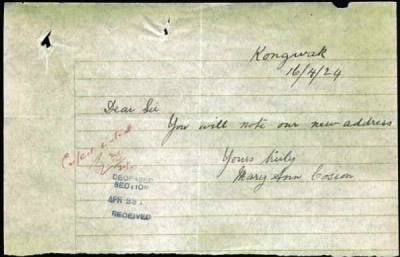 Kongwak
16/4/24
Dear Sir
You will note our new address
Yours truly
Mary Ann Cosson
DECEASED
SECTION
APR 23
RECEIVED